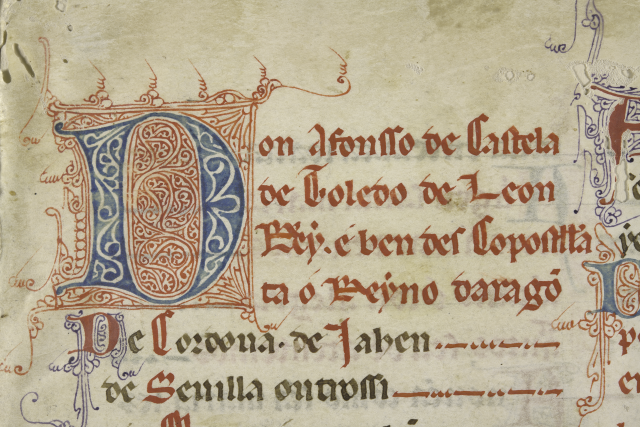 Don Afonsso de Castela
de Toledo de Leon
Rey. e ben des Conpostella
ta o Reyno daragõ
De Cordoua. de Jahen
de Seuilla outrossi